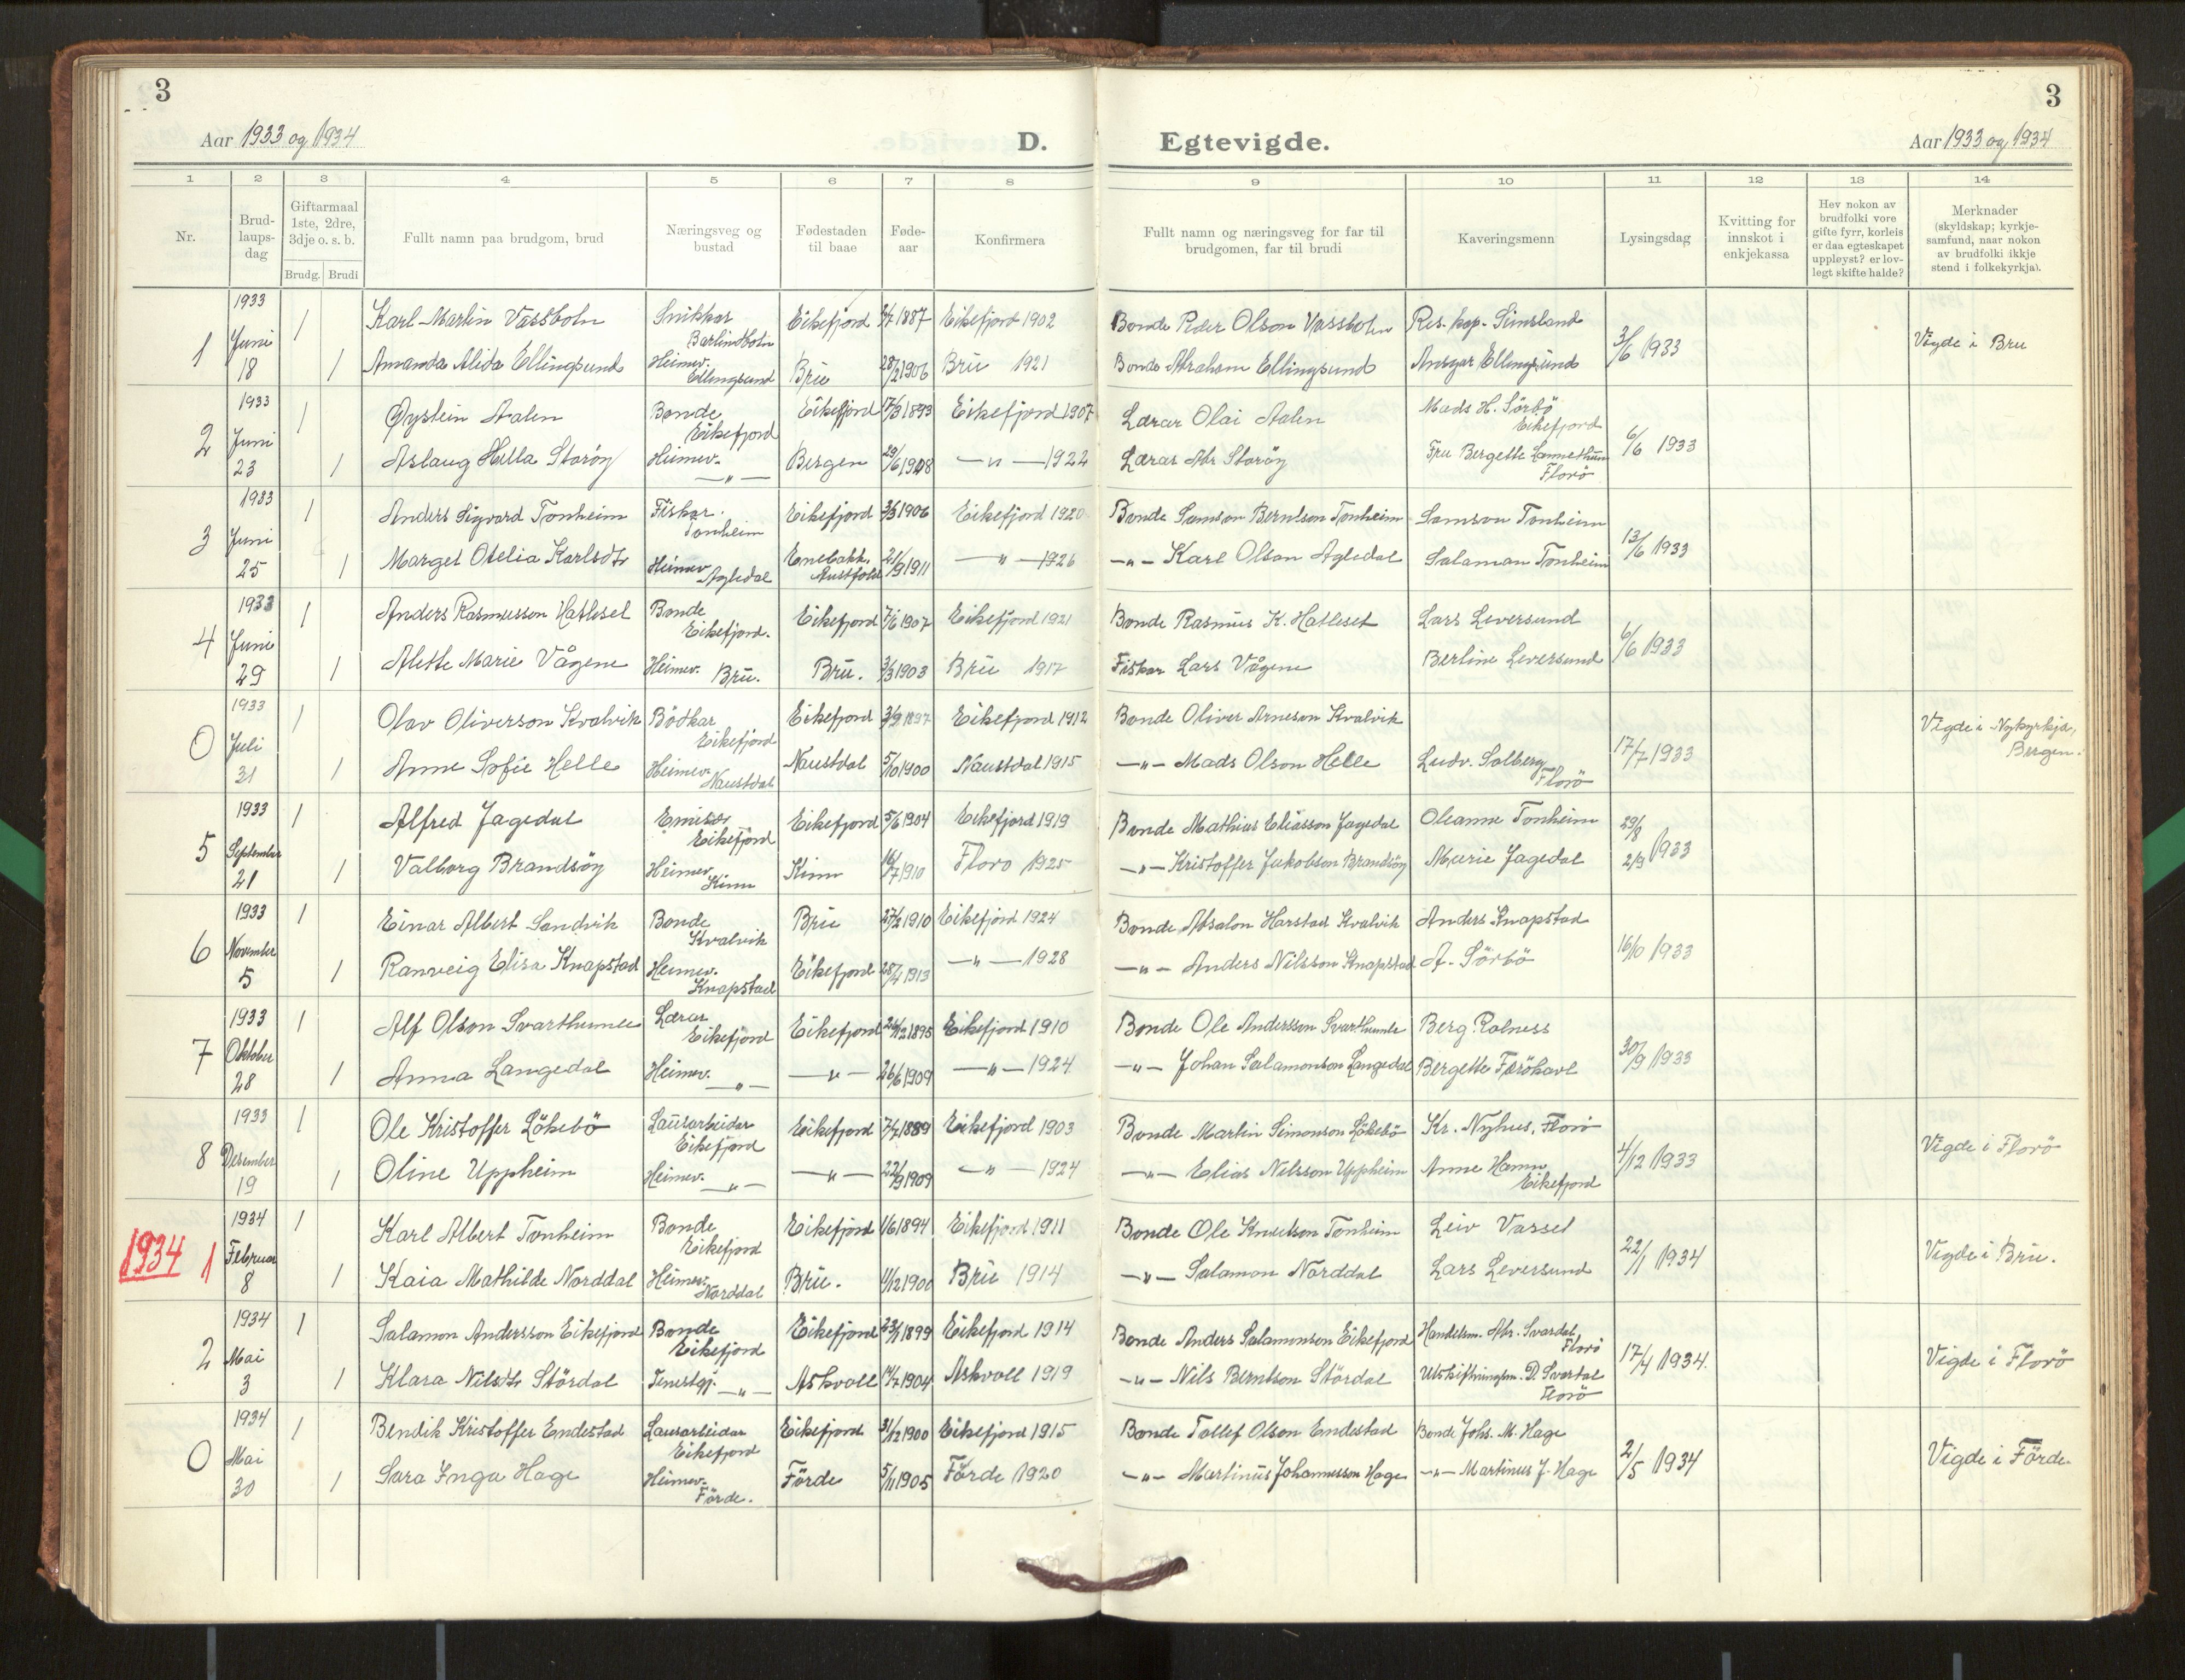 3
Aar 1933 og 1934
D. Egtevigde.
3
Aar 1933 og 1934
1 2 3 4 5 6 7 8 9 10 11 12 13 14
Nr.
Brud-laups-dag
Giftarmaal 1ste, 2dre, 3dje o. s. b.
Brudg. Brudi
Fullt namn paa brudgom, brud
Næringsveg og bustad
Fødestaden til baae
Føde-aar
Konfirmera
Fullt namn og næringsveg for far til brudgomen, far til brudi
Kaveringsmenn
Lysingsdag
Kvitting for innskot i enkjekassa
Hev nokon av brudfolki vore gifte fyrr, korleis er daa egteskapet uppløyst? er lov-legt skifte halde?
Merknader (skyldskap; kyrkje-samfund, naar nokon av brudfolki ikkje stend i folkekyrkja).
1 1933 Juni 18
1 Karl Martin Vassbotn Snikkar Barlindbotn Eikefjord 3/7 1887 Eikefjord 1902 Bonde Peder Olson Vassbotn Res. kap. Simsland 3/6 1933 Vigde i Bru
1 Amanda Alida Ellingsund Heimev. Ellingsund Bru 28/2 1906 Bru 1921 Bonde Abraham Ellingsund Ansgar Ellingsund
2 1933 Juni 23
1 Øystein Aalen Bonde Eikefjord Eikefjord 17/3 1893 Eikefjord 1907 Lærar Olai Aalen Mads H. Sörbö Eikefjord 6/6 1933
1 Aslaug Hella Storöy Heimev. —"— Bergen 29/6 1908 —"— 1922 Lærar Abr Storöy Fru Bergette Florö
3 1933 Juni 25
1 Anders Sigvard Tonheim Fiskar Tonheim Eikefjord 3/3 1906 Eikefjord 1920 Bonde Samson Berntson Tonheim Samson Tonheim 13/6 1933
1 Marget Otelia Karlsdtr Heimev Agledal Enebakk, Austfold 21/9 1911 —"— 1926 —"— Karl Olson Agledal Salamon Tonheim
4 1933 Juni 29
1 Anders Rasmusson Hatleset Bonde Eikefjord. Eikefjord 7/6 1907 Eikefjord 1921 Bonde Rasmus K. Hatleset Lars Leversund 6/6 1933
1 Alette Marie Vågene Heimev. Bru. Bru. 3/3 1903 Bru 1917 Fiskar Lars Vågene Berline Leversund
0 1933 Juli 31
1 Olav Oliverson Kvalvik Bödkar Eikefjord Eikefjord 3/9 1897 Eikefjord 1912 Bonde Oliver Arneson Kvalvik 17/7 1933 Vigde i Nykyrkja, Bergen.
1 Anne Sofie Helle Heimev. Naustdal Naustdal 5/10 1900 Naustdal 1915 —"— Mads Olson Helle Ludv. Solberg Florö
5 1933 September 21
1 Alfred Jagedal Emisær Eikefjord Eikefjord 5/6 1904 Eikefjord 1919 Bonde Mathias Eliasson Jagedal Oleanne Tonheim 29/8 2/9 1933
1 Valborg Brandsöy Heimev. Kinn Kinn 16/7 1910 Floro 1925 —"— Kristoffer Jakobson Brandsöy Marie Jagedal
6 1933 November 5
1 Einar Albert Sandvik Bonde Kvalvik Bru 27/2 1910 Eikefjord 1924 Bonde Absalon Harstad Kvalvik Anders Knapstad 16/10 1933
1 Ranveig Elisa Knapstad Heimev. Knapstad Eikefjord 28/4 1913 —"— 1928 —"— Anders Nilsson Knapstad A. Sörbö
7 1933 Oktober 28
1 Alf Olson Svarthumle Lærar Eikefjord Eikefjord 26/12 1895 Eikefjord 1910 Bonde Ole Andersson Svarthumle Berg Rolness 30/9 1933
1 Anna Langedal Heimev. —"— —"— 26/6 1909 —"— 1924 —"— Johan Salamonson Langedal Bergette Færöhavl
8 1933 Desember 19
1 Ole Kristoffer Lökebö Lausarbeidar Eikefjord Eikefjord 7/7 1889 Eikefjord 1903 Bonde Martin Simonson Lökebö Kr. Nyhus, Florö 4/12 1933 Vigde i Florö
1 Oline Uppheim Heimev. —"— —"— 22/9 1909 —"— 1924 —"— Elias Nilsson Uppheim Anne Hamn Eikefjord
1934 1 1934 Februar 8
1 Karl Albert Tonheim Bonde Eikefjord Eikefjord 1/6 1894 Eikefjord 1911 Bonde Ole Knudson Tonheim Leiv Vasset 22/1 1934 Vigde i Bru.
1 Kaia Mathilde Norddal Heimev. Norddal Bru. 11/12 1900 Bru 1914 —"— Salamon Norddal Lars Leversund
2 1934 Mai 3
1 Salamon Andersson Eikefjord Bonde Eikefjord Eikefjord 23/1 1899 Eikefjord 1914 Bonde Anders Salamonson Eikefjord Handelsm. Abr. Svardal, Florö 17/4 1934. Vigde i Florö
1 Klara Nilsdtr Stördal Tenestgj. —"— Askvoll 14/7 1904 Askvoll 1919 —"— Nils Berntson Stördal Utskiftningsm. D. Svardal Florö
0 1934 Mai 30
1 Bendik Kristoffer Endestad Lausarbeidar Eikefjord Eikefjord 31/12 1900 Eikefjord 1915 Bonde Tollef Olson Endestad Bonde Johs. M. Hage 2/5 1934 Vigde i Förde.
1 Sara Inga Hage Heimev. Förde. Förde 5/11 1905 Förde 1920 —"— Martinus Johannesson Hage —"— Martinus J. Hage